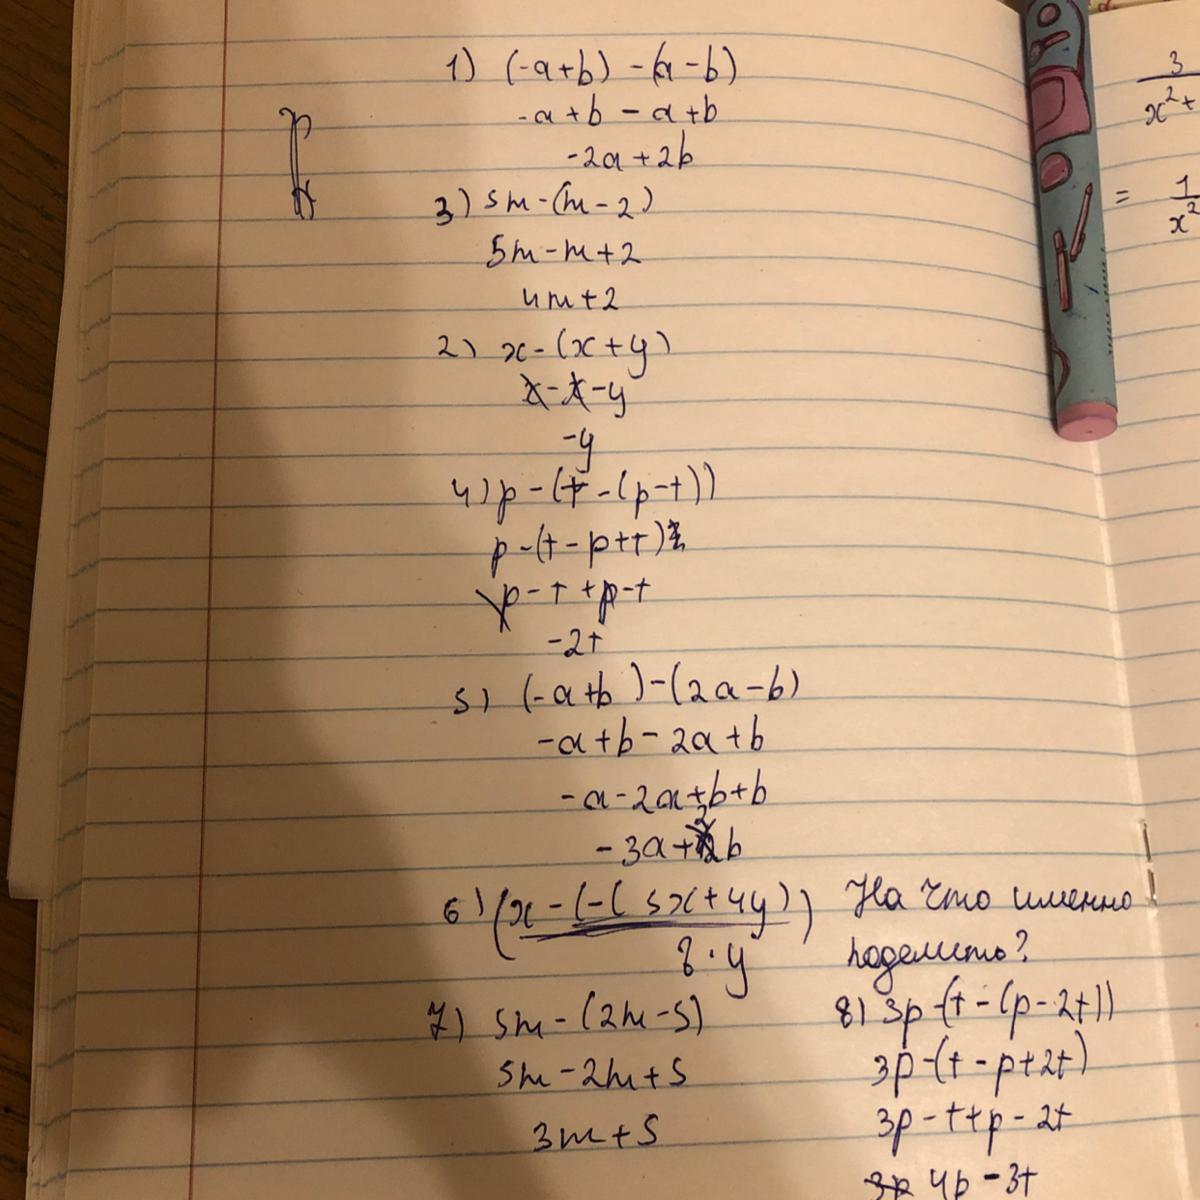 1) (-a+b) -(a-b)
-a+b -a+b
-2a+2b
3) 5m-(m-2)
5m-m+2
4m+2
2) x-(x+y)
x-x-y
-y
4) p-(t-(p-t))
p-(t-p+t)
p-t+p-t
-2t
5) (-a+b)-(2a-b)
-a+b-2a+b
-a-2a+b+b
-3a+2b
6) (x-(-(5x+4y))
8·y
На что именно
поделить?
7) 5m-(2m-5)
5m-2m+5
3m+5
8) 3p-(t-(p-2t))
3p-(t-p+2t)
3p-t+p-2t
4p-3t
3
x²+
= 1
x²